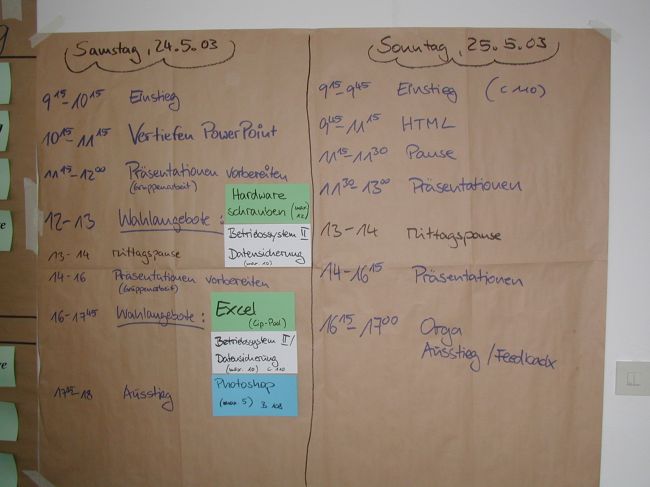 Samstag, 24.5.03
9¹⁵-10¹⁵ Einstieg
10¹⁵-11¹⁵ Vertiefen PowerPoint
11¹⁵-12⁰⁰ Präsentationen vorbereiten
(Gruppenarbeit)
12-13 Wahlangebote:
Hardware
schrauben (max. 12)
Betriebssystem II
Datensicherung
(max. 10)
13-14 Mittagspause
14-16 Präsentationen vorbereiten
(Gruppenarbeit)
16-17⁴⁵ Wahlangebote:
Excel
(Cip-Pool)
Betriebssystem II/
Datensicherung
(max. 10) C 110
Photoshop
(max. 5) B 108
17⁴⁵-18 Ausstieg
Sonntag, 25.5.03
9¹⁵-9⁴⁵ Einstieg (C 110)
9⁴⁵-11¹⁵ HTML
11¹⁵-11³⁰ Pause
11³⁰-13⁰⁰ Präsentationen
13-14 Mittagspause
14-16¹⁵ Präsentationen
16¹⁵-17⁰⁰ Orga
Ausstieg/Feedback